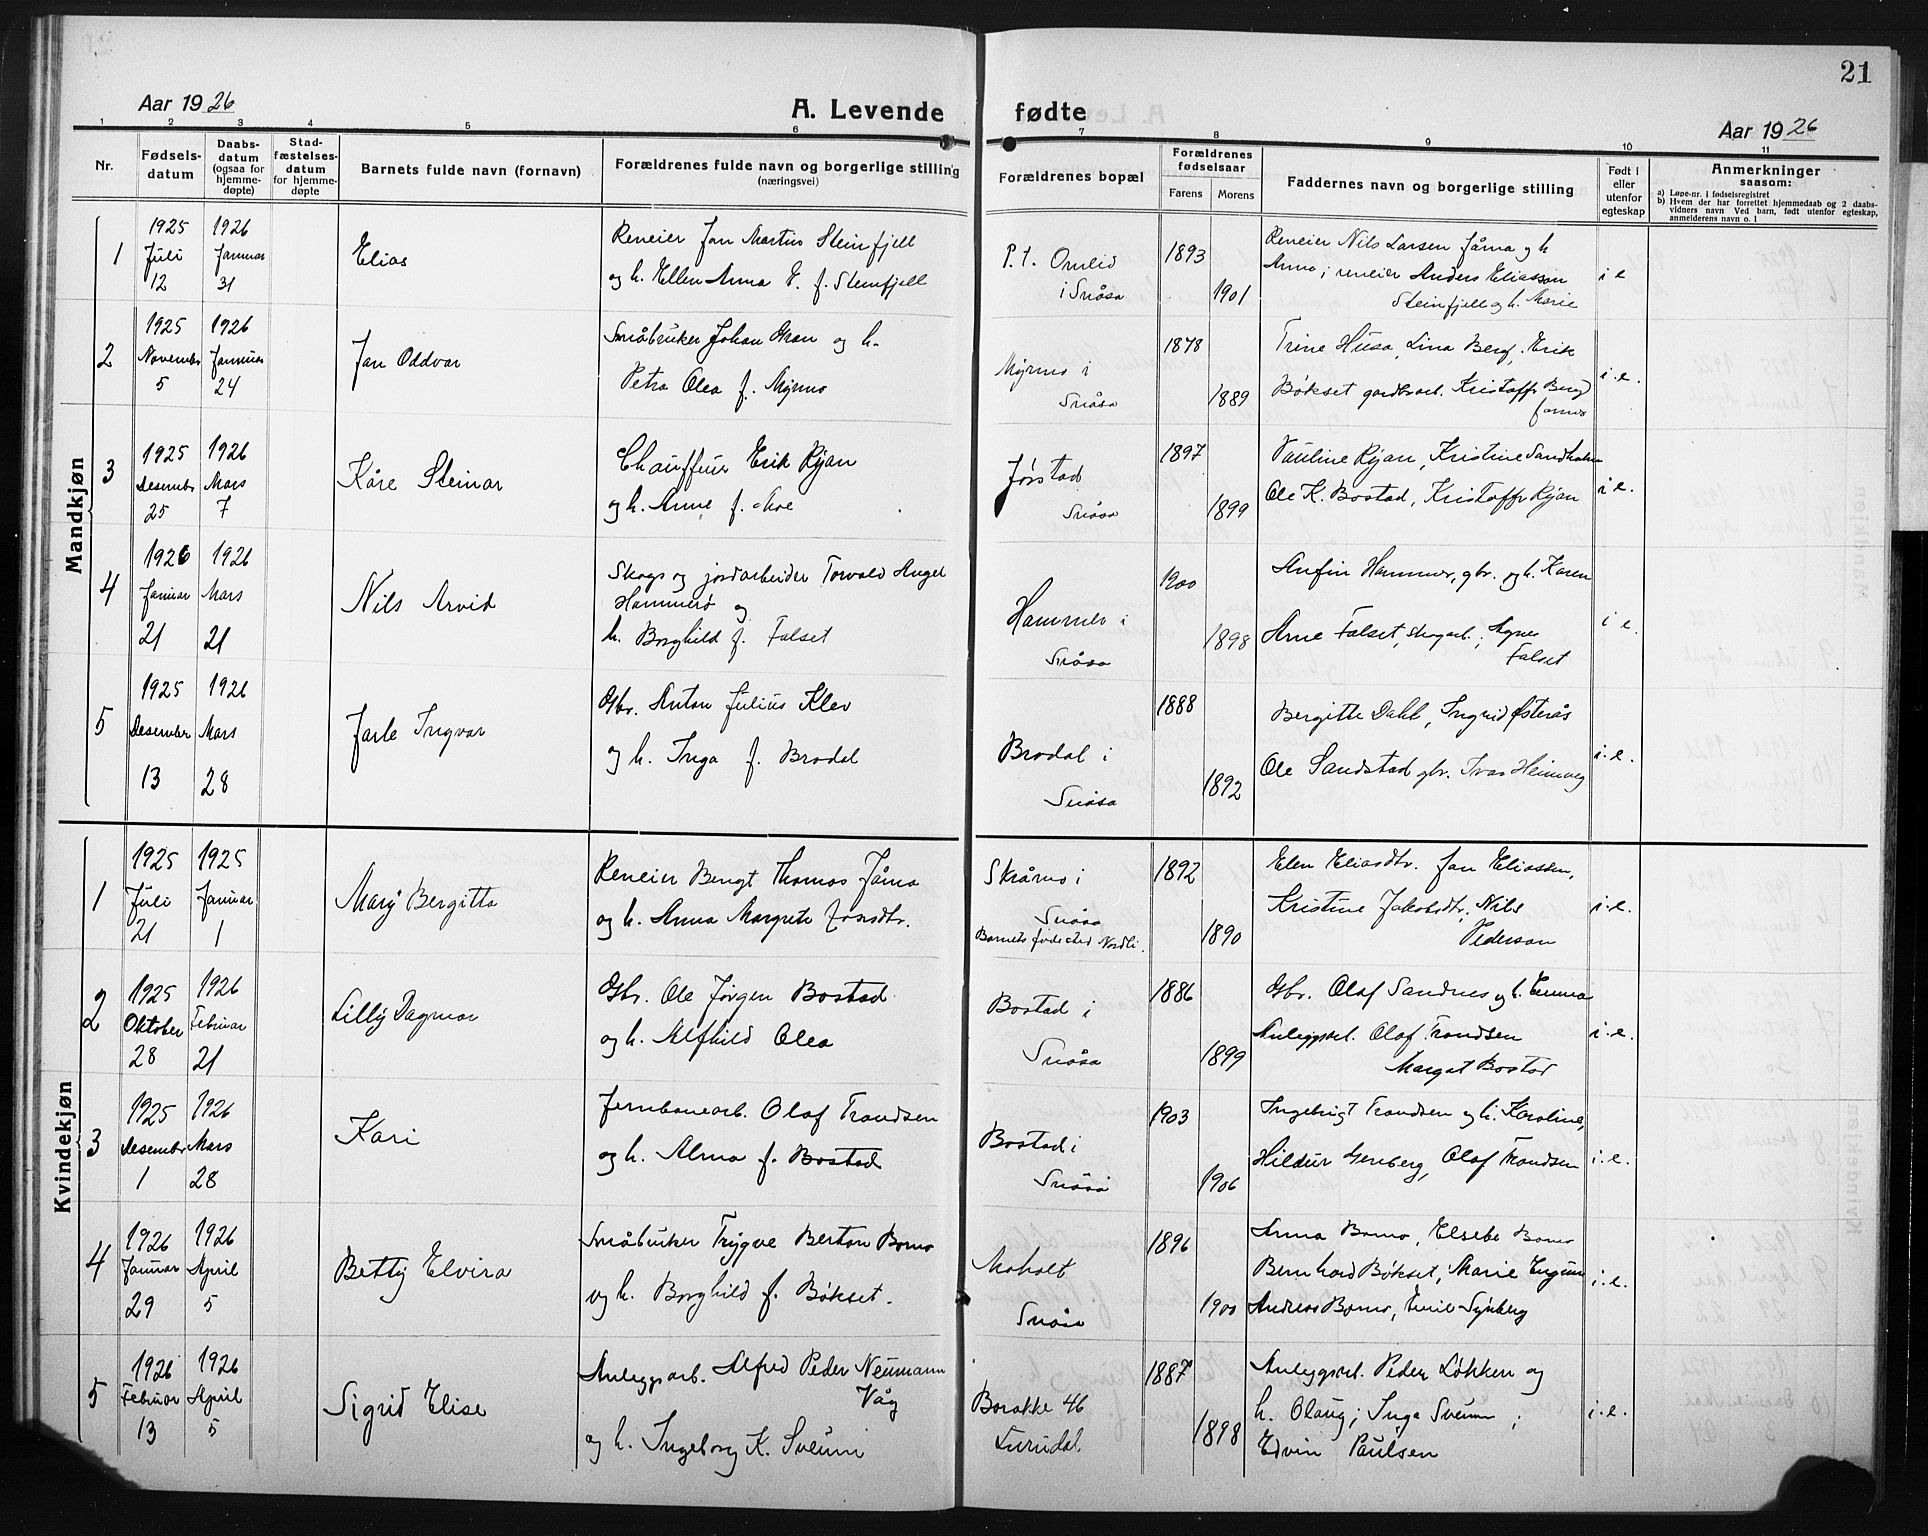 21
Aar 1926
A. Levende fødte
Aar 1926
1 2 3 4 5 6 7 8 9 10 11
Nr.
Fødsels-
datum
Daabs-
datum
(ogsaa for
hjemme-
døpte)
Stad-
fæstelses-
datum
for hjemme-
døpte
Barnets fulde navn (fornavn)
Forældrenes fulde navn og borgerlige stilling
(næringsvei)
Forældrenes bopæl
Forældrenes
fødselsaar
Farens Morens
Faddernes navn og borgerlige stilling
Født i
eller
utenfor
egteskap
Anmerkninger
saasom:
a) Løpe-nr. i fødselsregistret
b) Hvem der har forrettet hjemmedaab og 2 daabs-
vidners navn Ved barn, født utenfor egteskap,
anmelderens navn o. l
Mandkjøn
1
1925
Juli
12
1926
Januar
31
Elias
Reneier Jan Martin Steinfjell
og h. Ellen Anna E. f. Steinfjell
P. t. Omlid
i Snåsa
1893
1901
Reneier Nils Larsen Jåma og h
Anna; reneier Anders Eliassen
Steinfjell og h. Marie
i e
2
1925
November
5
1926
Januar
24
Jan Oddvar
Småbruker Johan Gran og h.
Petra Olea f. Myrmo
Myrmo i
Snåsa
1878
1889
Trine Husa, Lina Berg, Erik
Bøkset gardbrarb. Kristoffr Berg
i. e.
3
1925
Desembr
25
1926
Mars
7
Kåre Steinar
Chauffeur Erik Ryan
og h. Anne f. Moe
Jørstad
Snåsa
1897
1899
Pauline Ryan, Kristine Sandholm
Ole K. Bostad, Kristoffr Ryan
i e.
4
1926
Januar
21
1926
Mars
21
Nils Arvid
Skogs og jordarbeider Torvald Angel
Hammerø og
h. Borghild f. Falset
Hammer i
Snåsa
1900
1898
Anfin Hammer, gbr. og h. Karen
Arne Falset, skogarb.; Agnes
Falset
i e.
5
1925
Desember
13
1926
Mars
28
Jarle Ingvar
Gbr. Anton Julius Klev
og h. Inga f. Brodal
Brodal i
Snåsa
1888
1892
Bergitte Dahl, Ingrid Østerås
Ole Sandstad gbr. Ivar Heimveg
i. e.
Kvindekjøn
1
1925
Juli
21
1925
Januar
1
Mary Bergitta
Reneier Bengt Thomas Jåma
og h. Anna Margrete Jonsdtr.
Skråmo i
Snåsa
Barnets fødested Nordli.
1892
1890
Elen Eliasdtr. Jan Eliassen,
Kristine Jakobsdtr, Nils
Pederson
i. e.
2
1925
Oktober
28
1926
Februar
21
Lilly Dagmar
Gbr. Ole Jørgen Bostad
og h. Alfhild Olea
Bostad i
Snåsa
1886
1899
Gbr. Olaf Sandnes og h. Emma
Anleggsarb. Olaf Trondsen
Margat Bostad
i. e.
3
1925
Desember
1
1926
Mars
28
Kari
Jernbanearb. Olaf Trondsen
og h. Alma f. Bostad
Bostad i
Snåsa
1903
1906
Ingebrigt Trondsen og h. Karoline,
Hildur Grenberg, Olaf Trondsen
i. e.
4
1926
Januar
29
1926
April
5
Betty Elvira
Småbruker Trygve Berton Bomo
og h. Borghild f. Bøkset.
Moholt
Snåsa
1896
1900
Anna Bomo, Elsebe Bomo
Bernhard Bøkset, Marie Engum
Andreas Bomo, Emil Synberg
i. e.
5
1926
Februar
13
1926
April
5
Sigrid Elise
Anleggsarb. Alfred Peder Neumann
Våg
og h. Ingeborg K. Sveum
Barakke 46
Lurudal
1887
1898
Anleggsarb. Peder Løkken og
h. Olaug; Inga Sveum;
Edvin Paulsen
i. e.